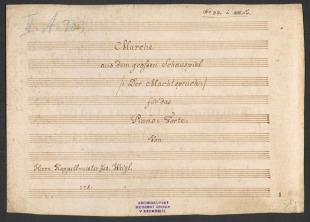 Marche
aus dem großen Schauspiel
/: Der Machtspruch :/
für das
Piano-Forte.
Von
Herrn Kapellmeister Jos. Weigl.
ARCIBISKUPSKÝ
HUDEBNÍ ARCHIV
V KROMĚŘÍŽI